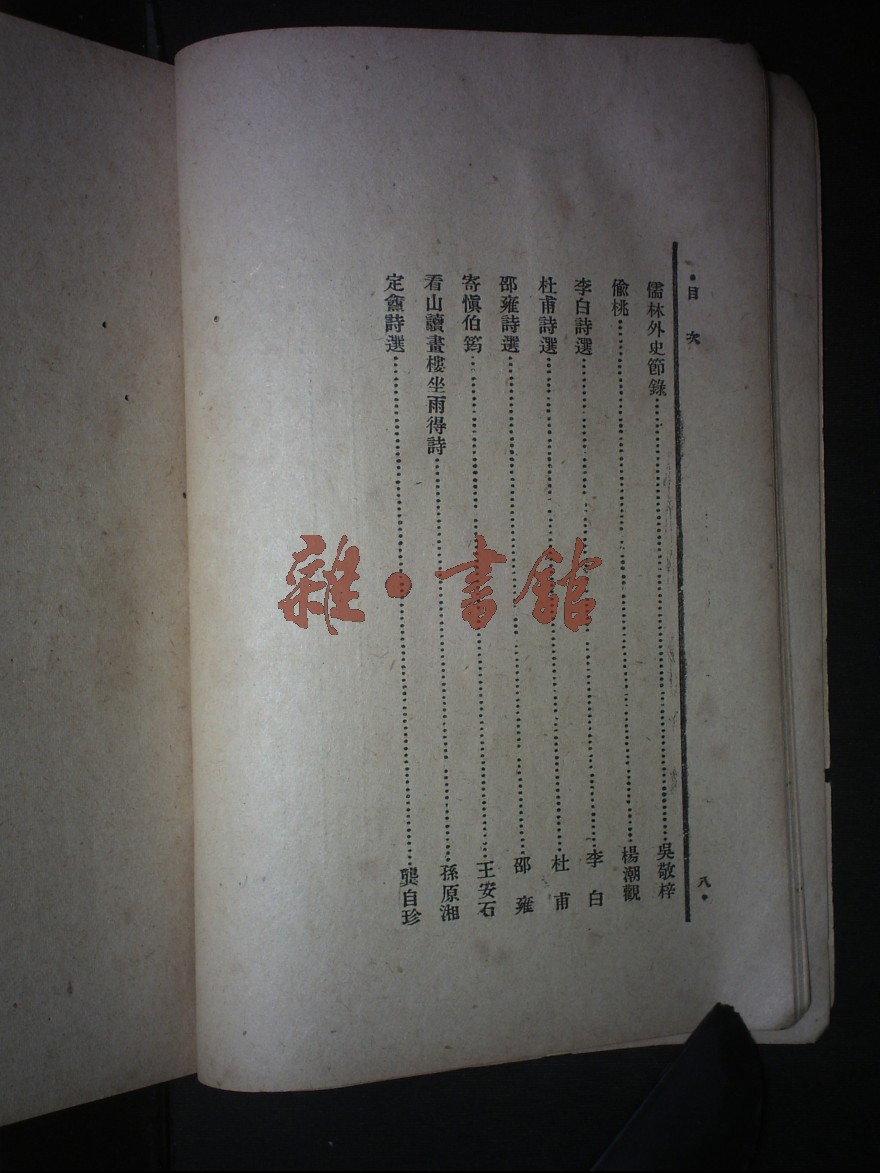 •目次
八•
儒林外史節錄……吳敬梓
偸桃……楊潮觀
李白詩選……李白
杜甫詩選……杜甫
邵雍詩選……邵雍
寄愼伯筠……王安石
看山讀畫樓坐雨得詩……孫原湘
定盦詩選……龔自珍
雜•書館